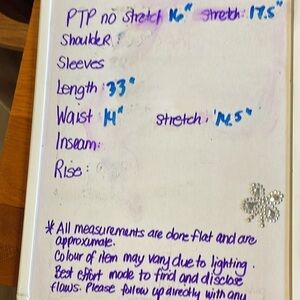 PTP no stretch 16" stretch: 17.5"
Shoulder:
Sleeves
Length: 33"
Waist 14" stretch: 14.5"
Inseam:
Rise:
* All measurements are done flat and are
approximate.
Colour of item may vary due to lighting.
Best effort made to find and disclose
flaws. Please follow up directly with any